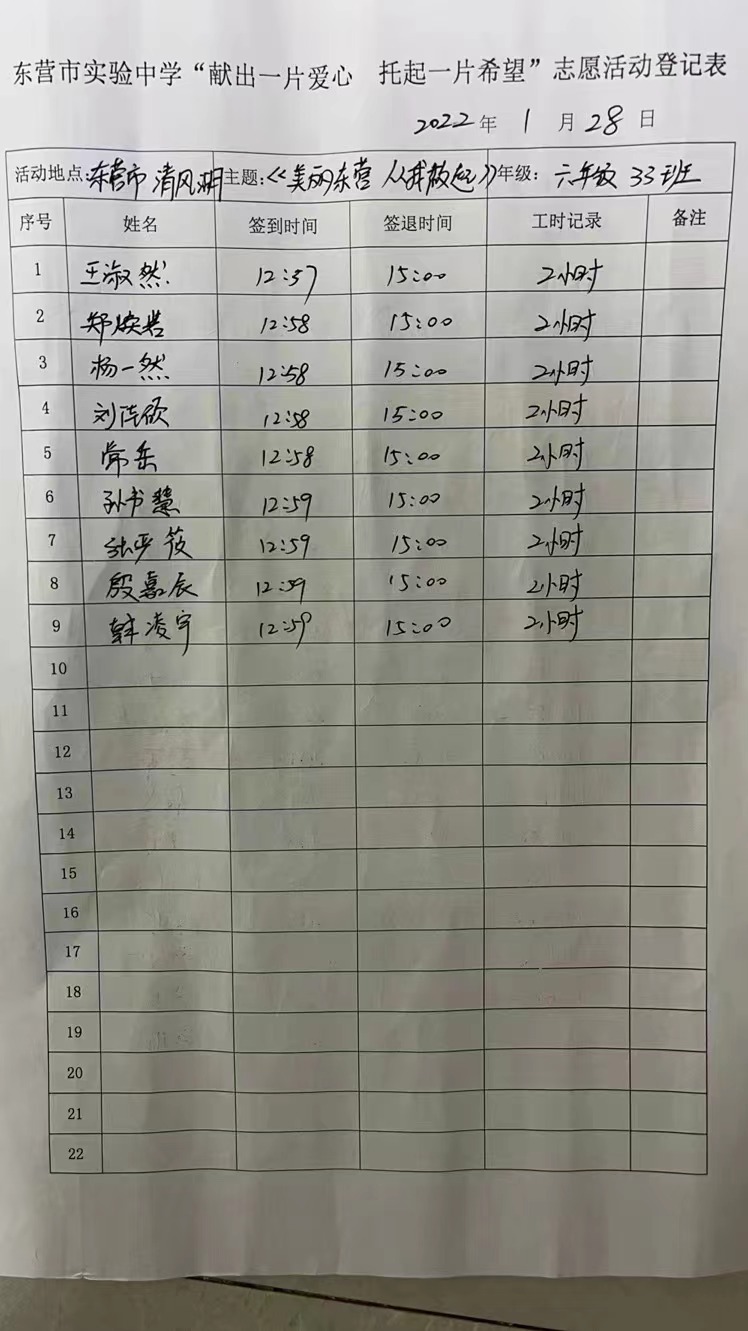 东营市实验中学“献出一片爱心 托起一片希望”志愿活动登记表
2022年 1月28日
活动地点:东营市清风湖 主题:《美丽东营 从我做起》 年级: 六年级 33班
序号 姓名 签到时间 签退时间 工时记录 备注
1 王淑然 12:57 15:00 2小时
2 郑 12:58 15:00 2小时
3 杨一然 12:58 15:00 2小时
4 刘 12:58 15:00 2小时
5 常岳 12:58 15:00 2小时
6 孙书慧 12:59 15:00 2小时
7 张 筱 12:59 15:00 2小时
8 殷嘉辰 12:59 15:00 2小时
9 韩凌宇 12:59 15:00 2小时
10
11
12
13
14
15
16
17
18
19
20
21
22